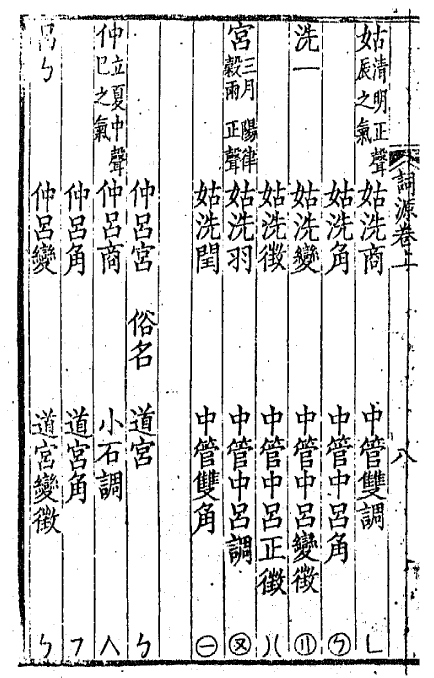 詞源卷上 八
姑 清明正聲 辰之氣 姑洗商 中管雙調 ㄴ
姑洗角 中管中呂角
洗 一 姑洗變 中管中呂變徵
姑洗徵 中管中呂正徵 八
宮 三月陽律 穀雨正聲 姑洗羽 中管中呂調
姑洗閏 中管雙角 ㊀
仲呂宮 俗名 道宮 ㄣ
仲 立夏中聲 巳之氣 仲呂商 小石調 人
仲呂角 道宮角 フ
呂 ㄣ 仲呂變 道宮變徵 ㄣ